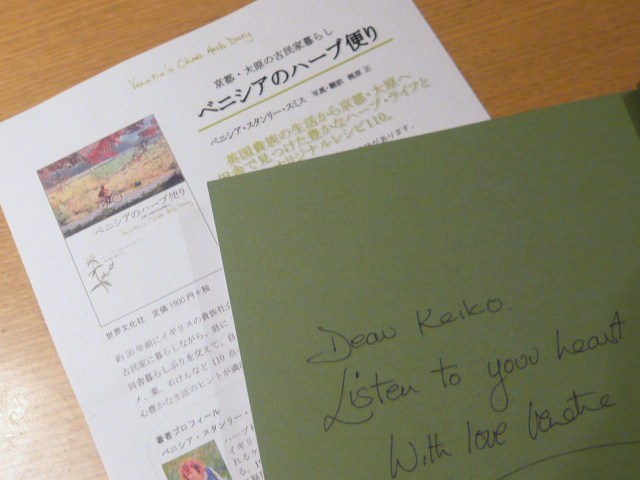 Venetia's Ohara Herb Diary
京都・大原の古民家暮らし
ベニシアのハーブ便り
ベニシア・スタンリー・スミス 写真・翻訳 梶原 正
英国貴族の生活から京都・大原へ
田舎で見つけた豊かなハーブ・ライフと
オリジナルレシピ110。
があります。
ベニシアのハーブ便り
世界文化社 定価1900円+税
約30年前にイギリスの貴族社
古民家に暮らしながら、庭に
田舎暮らしぶりを交えて、自
メ、薬、石けんなど110点
心豊かな生活のヒントが満
著者プロフィール
ベニシア・スタンリー・
ハーブ
イギリ
れるケ
Dear Keiko.
Listen to your heart
With love Venetia